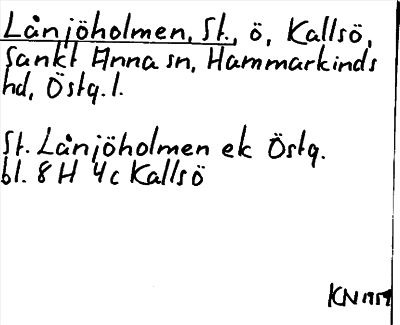 Långjöholmen, St., ö, Kallsö,
Sankt Anna sn, Hammarkinds
hd, Östg. l.
St. Långjöholmen ek Östg.
bl. 8 H 4 c Kallsö
KN 1959